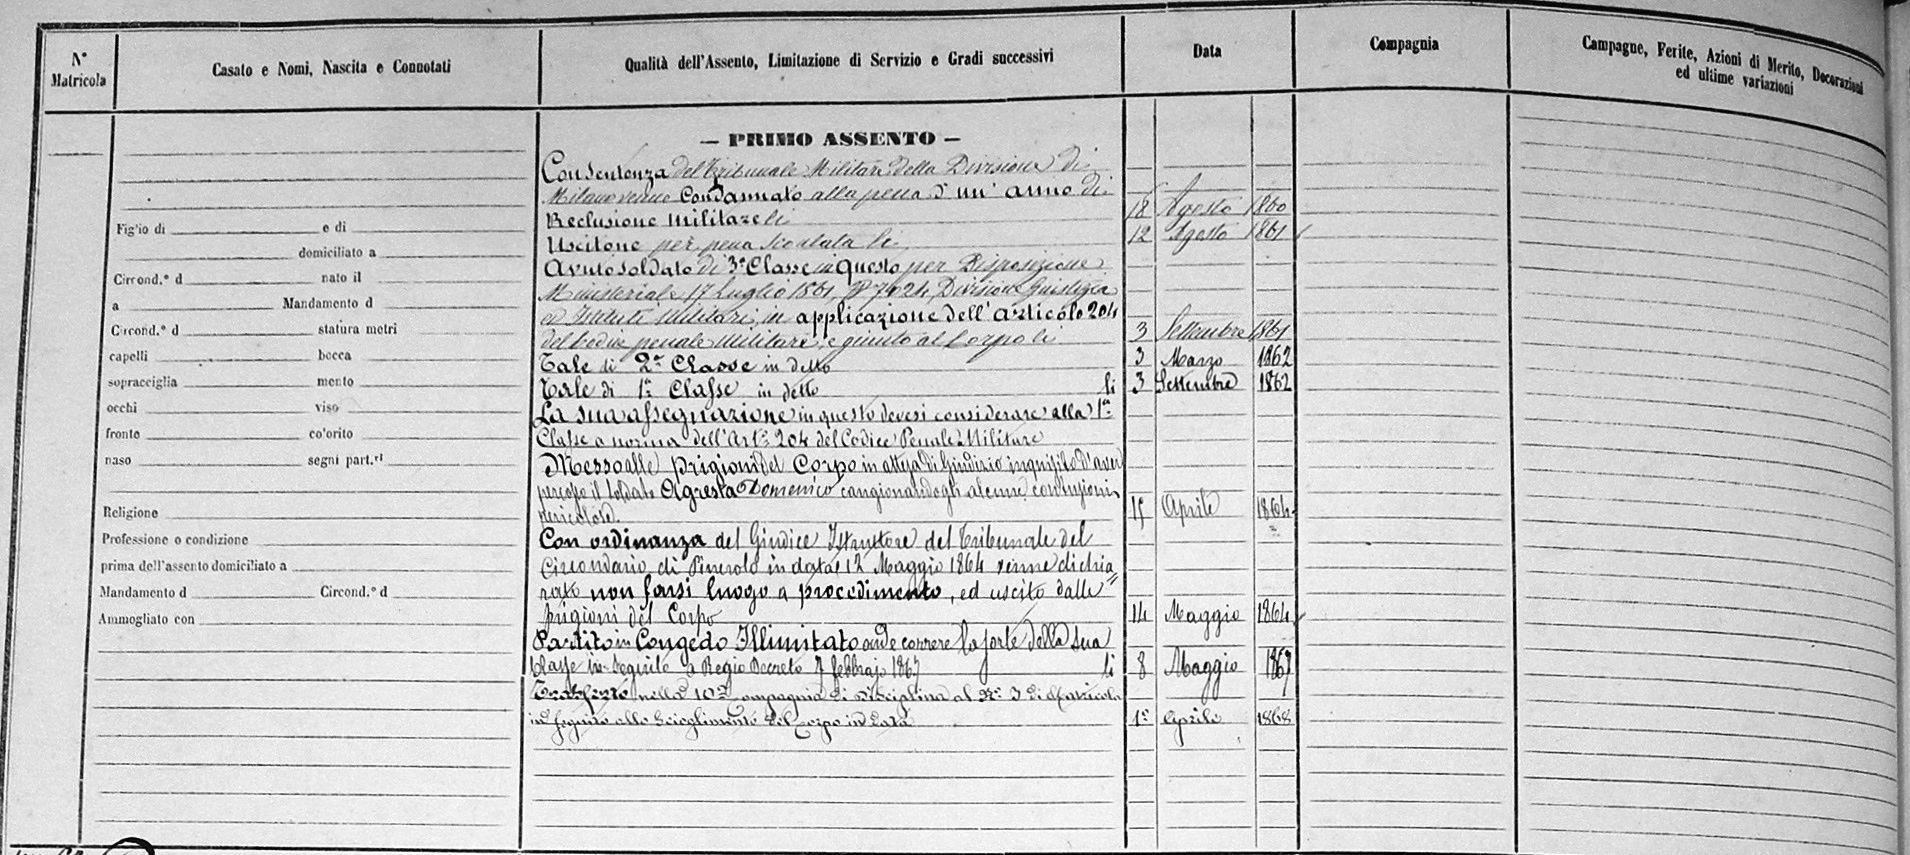 N° Matricola
Casato e Nomi, Nascita e Connotati
Qualità dell'Assento, Limitazione di Servizio e Gradi successivi
Data
Compagnia
Campagne, Ferite, Azioni di Merito, Decorazioni
ed ultime variazioni
— PRIMO ASSENTO —
Con sentenza del Tribunale Militare della Divisione di
Milano venne Condannato alla pena d'un'anno di
Reclusione Militare li 18 Agosto 1860
Uscitone per pena scontata li 12 Agosto 1861
Avuto soldato di 3ª Classe in questo per Disposizione
Ministeriale 17 Luglio 1861, N° 7024, Divisione Giustizia
ed Istituti Militari, in applicazione dell'articolo 204
del Codice penale Militare, e giunto al Corpo li 3 Settembre 1861
Tale di 2ª Classe in detto 3 Marzo 1862
Tale di 1ª Classe in detto li 3 Settembre 1862
La sua assegnazione in questo devesi considerare alla 1ª
Classe a norma dell'Art° 204 del Codice Penale Militare
Messo alle prigioni del Corpo in attesa di Giudizio inquisito d'aver
percosso il soldato Agresta Domenico cangionandogli alcune contusioni
pericolose. 15 Aprile 1864
Con ordinanza del Giudice Istruttore del Tribunale del
Circondario di Pinerolo in data 12 Maggio 1864 venne dichia
rato non farsi luogo a procedimento, ed uscito dalle
prigioni del Corpo 14 Maggio 1864
Partito in Congedo Illimitato onde correre la sorte della sua
Classe in seguito a Regio Decreto 7 febbrajo 1867 li 8 Maggio 1867
nella 10ª compagnia di Disciplina al N° 3 di Matricola
in seguito allo scioglimento del Corpo in data 1° Aprile 1868
Figlio di e di
domiciliato a
Circond.° d nato il
a Mandamento d
Circond.° d statura metri
capelli bocca
sopracciglia mento
occhi viso
fronte colorito
naso segni part.ri
Religione
Professione o condizione
prima dell'assento domiciliato a
Mandamento d Circond.° d
Ammogliato con